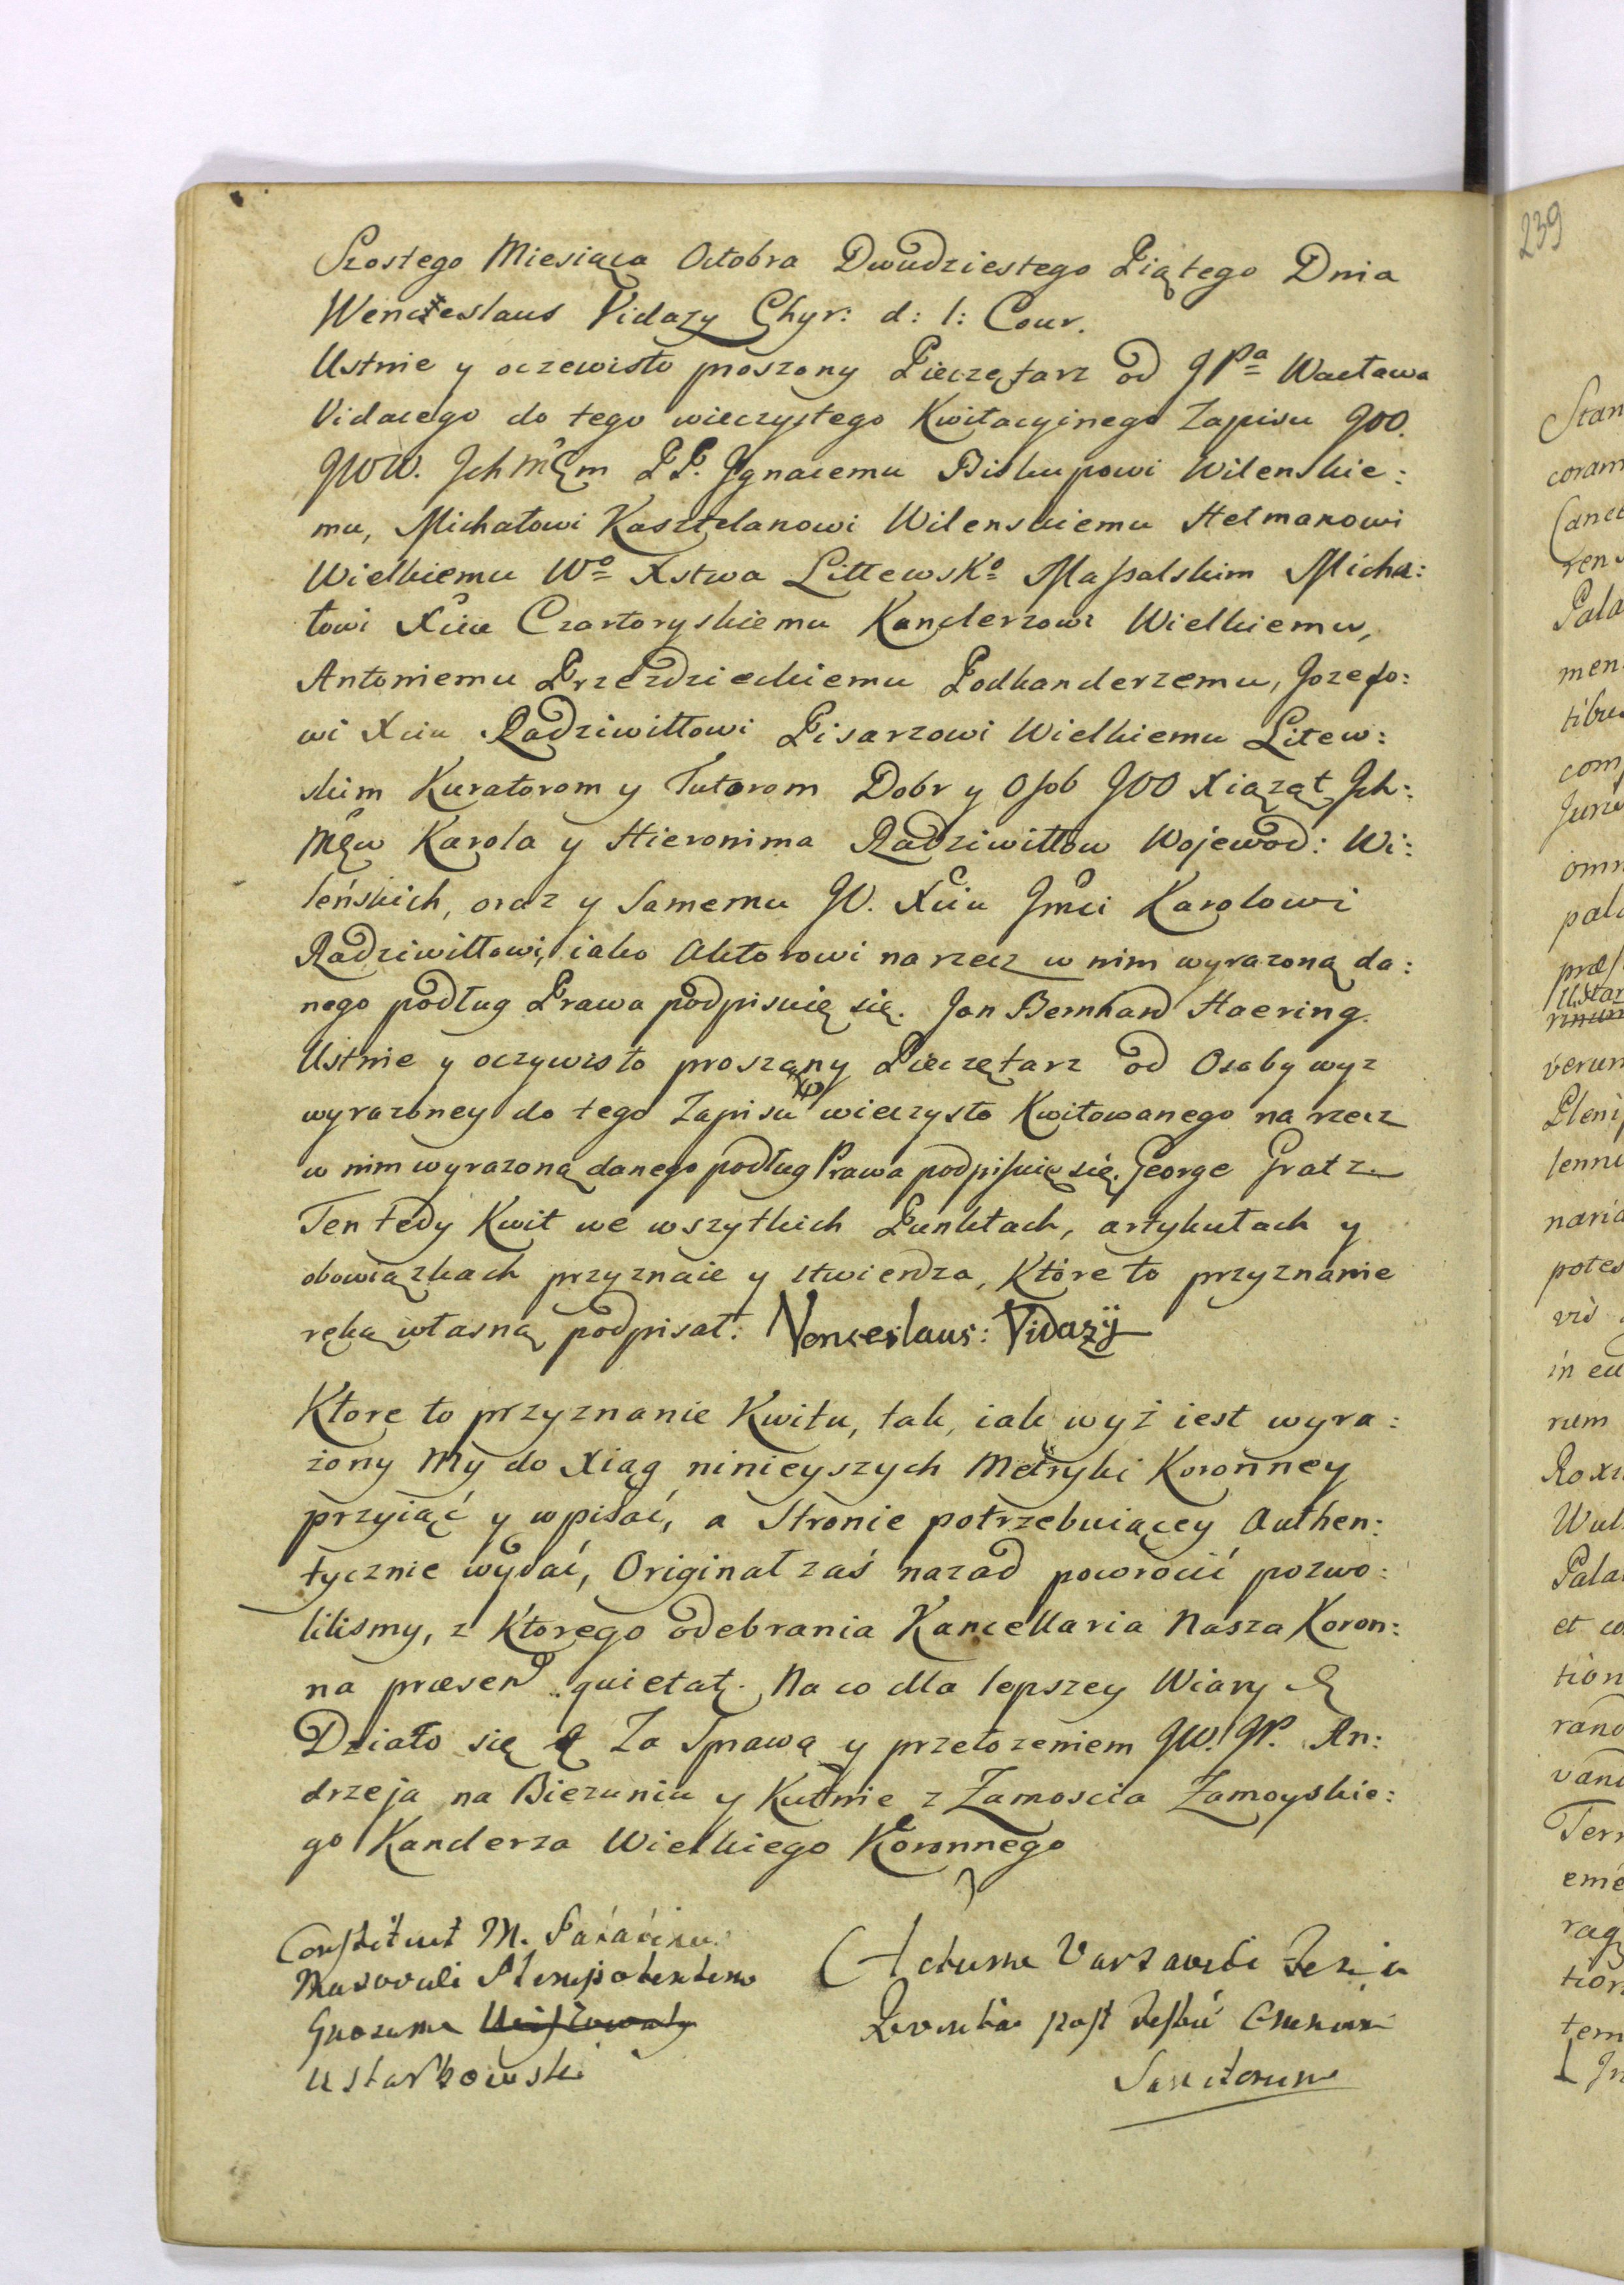 Szostego Miesiąca Octobra Dwudziestego Piątego Dnia
Wenceslaus Vidazy Chyr: d: l: Cour.
Ustnie y oczewisto proszony Pieczętarz od JPa Wacława
Vidacego do tego wieczystego Kwitacyjnego Zapisu JOO.
JWW. Jchmćm PP. Jgnacemu Biskupowi Wilenskie:
mu, Michałowi Kasztelanowi Wilenskiemu Hetmanowi
Wielkiemu Wo Xstwa Littewsko Massalskim Micha:
łowi Xciu Czartoryskiemu Kanclerzowi Wielkiemu,
Antoniemu Przezdzieckiemu Podkanclerzemu, Jozefo:
wi Xciu Radziwiłłowi Pisarzowi Wielkiemu Litew:
skim Kuratorom y Tutorom Dobr y Osob JOO Xiążąt Jch:
Mćw Karola y Hieronima Radziwiłłow Wojewod: Wi:
leńskich, oraz y Samemu JO. Xciu Jmci Karolowi
Radziwiłłowi, iako Aktorowi na rzecz w nim wyrazoną da:
nego podług Prawa podpisuię się. Jan Bernhard Haering.
Ustnie y oczywisto proszony Pieczętarz od Osoby wyz
wyrazoney do tego Zapisu wieczysto Kwitowanego na rzecz
w nim wyrazoną danego podług Prawa podpisuię się. George Gratz
Ten tedy Kwit we wszytkich Punktach, artykułach y
obowiązkach przyznaie y stwierdza, Które to przyznanie
ręką własną podpisał: Venceslaus: Vidazÿ
Ktore to przyznanie Kwitu, tak, iak wyż iest wyra:
żony My do Xiąg ninieyszych Metryki Koronney
przyiąć y wpisać, a Stronie potrzebuiącey Authen:
tycznie wydać, Originał zaś nazad powrocić pozwo:
lilismy, z Ktorego odebrania Kancellaria Nasza Koron:
na præsen quietat. Na co dla lepszey Wiary &
Działo się & Za Sprawą y przełozeniem JW. JP. An:
drzeja na Biezuniu y Kutnie z Zamoscia Zamoyskie:
go Kanclerza Wielkiego Koronnego
Constituit M.
Plenipotentem
Ustarbowski
Actum Varsaviæ Feria
post Festū Omnium
Sanctorum
239